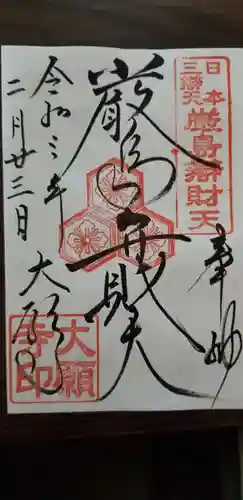 奉拝
日本
三辨天
厳島辨財天
厳島弁財天
令和三年
二月廿三日
大願寺
大願
寺印